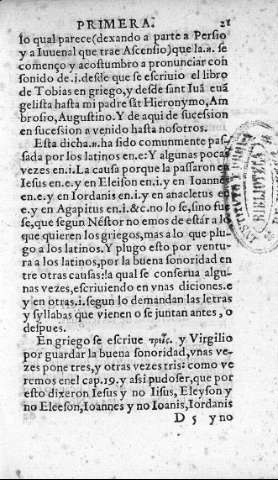 PRIMERA. 21
lo qual parece (dexando a parte a Persio
y a Iuuenal que trae Ascensio) que la.n. se
començo y acostumbro a pronunciar con
sonido de.i. desde que se escriuio el libro
de Tobias en griego, y desde sant Iuã euã
gelista hasta mi padre sãt Hieronymo, Am
brosio, Augustino. Y de aqui de sucession
en sucession a venido hasta nosotros.
Esta dicha.n. ha sido comunmente pas-
sada por los latinos en.e: Y algunas pocas
vezes en.i. La causa porque la passaron en
Iesus en.e. y en Eleison en.i. y en Ioannes
en.e. y en Iordanis en.i. y en anacletus en
e. y en Agapitus en.i. &c. no lo se, sino fues
se, que segun Néstor no emos de estár a lo
que quieren los griegos, mas a lo que plu-
go a los latinos. Y plugo esto por ventu-
ra a los latinos, por la buena sonoridad en
tre otras causas: la qual se conserua algu-
nas vezes, escriuiendo en vnas diciones.e
y en otras.i. segun lo demandan las letras
y syllabas que vienen o se juntan antes, o
despues.
En griego se escriue τρίς. y Virgilio
por guardar la buena sonoridad, vnas ve-
zes pone tres, y otras vezes tris: como ve
remos en el cap. 19. y assi pudo ser, que por
esto dixeron Iesus y no Iisus, Eleyson y
no Eleeson, Ioannes y no Ioanis, Iordanis
D 5 y no
BIBLIOTECA